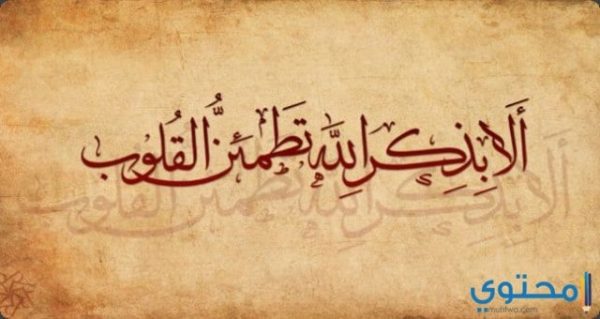 أَلَا بِذِكِرَ اللَّهِ تَطْمَئِنُّ الْقُلُوبُ
ألا بذكر الله تطمئن القلوب
محتوى
muhtwa.com